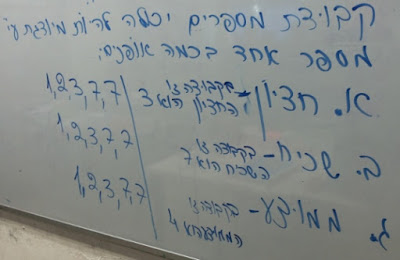 קבוצת מספרים יכולה להיות מיוצגת ע״י
מספר אחד בכמה אופנים:
א. חציון - שקבוצה זו החציון הוא 3 | 1,2,3,7,7
ב. שכיח - בקבוצה זו השכיח הוא 7 | 1,2,3,7,7
ג. ממוצע - בקבוצה זו הממוצע הוא 4 | 1,2,3,7,7